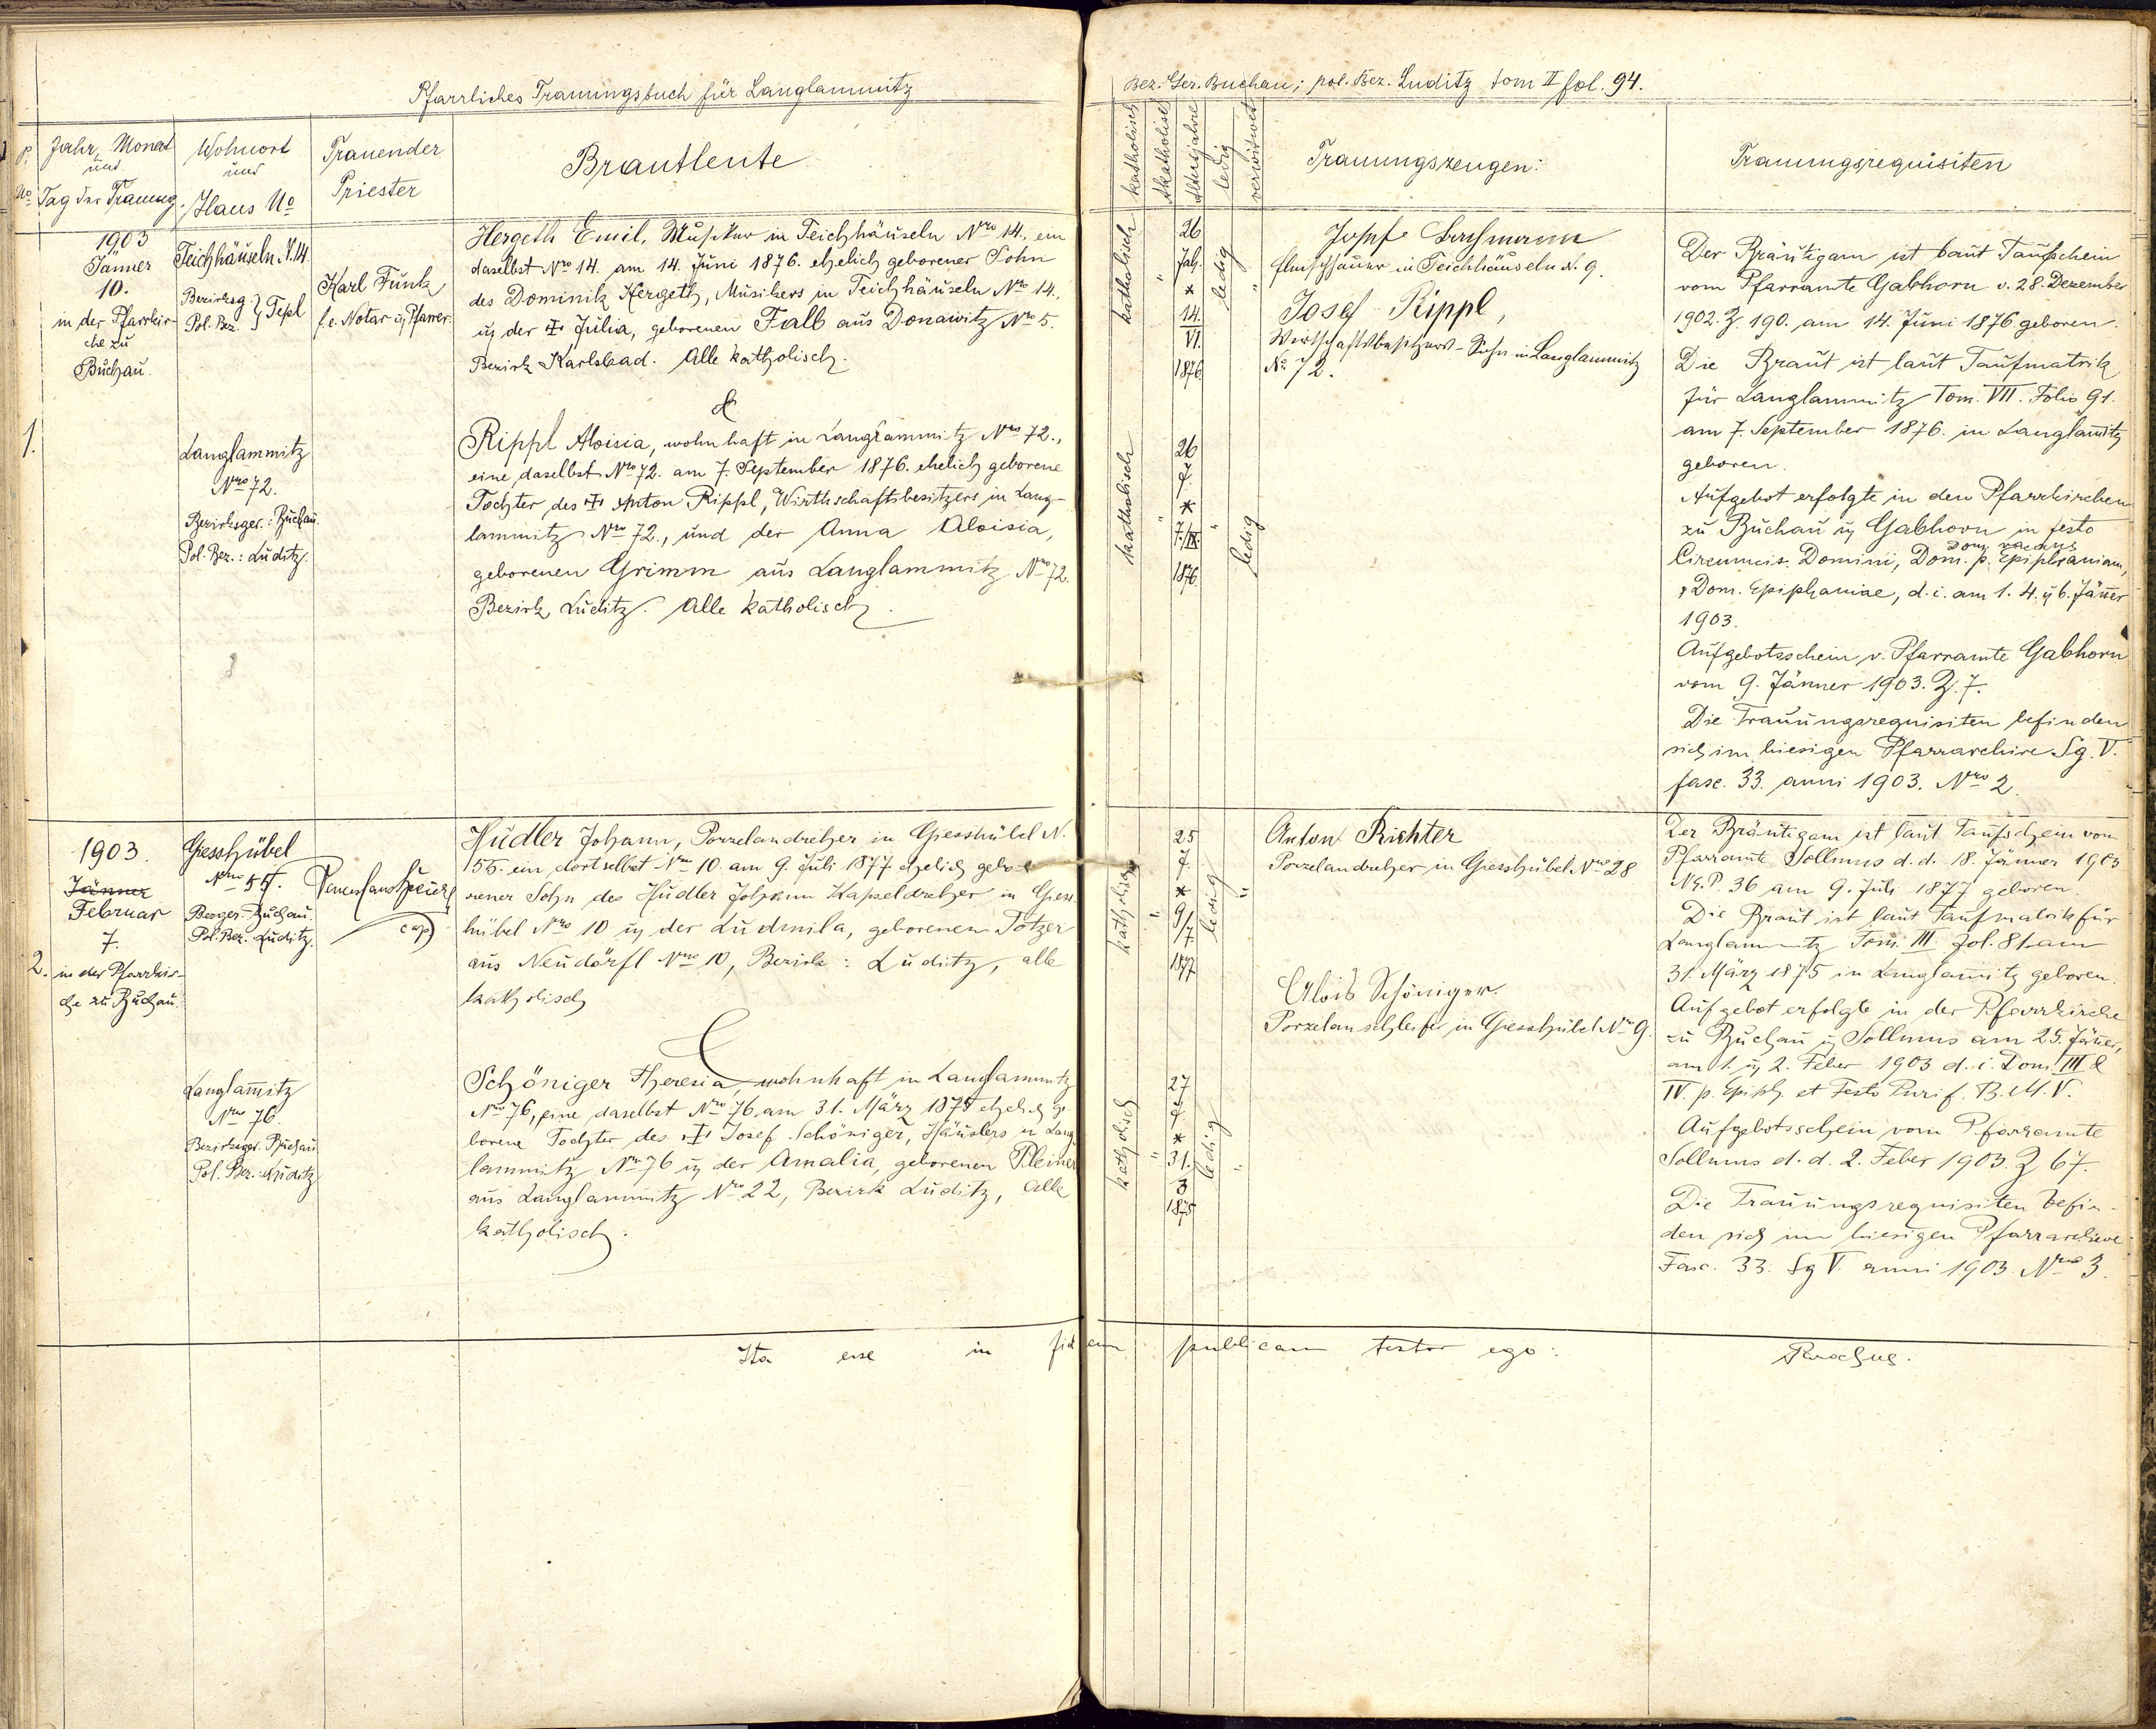 Pfarrliches Trauungsbuch für Langlammitz
Bez. Ger. Buchau; pol. Bez. Luditz tom II fol. 94.
P. No
Jahr, Monat
und
Tag der Trauung.
Wohnort
und
Haus No
Trauender
Priester
Brautleute
katholisch
Akatholisch
Altersjahre
ledig
verwitwet
Trauungszeugen:
Trauungsrequisiten
1.
1903
Jänner
10.
in der Pfarrkir-
che zu
Buchau
Teichhäuseln N. 14.
Bezirksg.
Pol. Bez. } Tepl
Karl Funk
f. e. Notar u. Pfarrer.
Hergeth Emil, Musiker in Teichhäuseln Nro 14., ein
daselbst Nro 14. am 14. Juni 1876. ehelich geborener Sohn
des Dominik Hergeth, Musikers in Teichhäuseln Nro 14.,
u. der † Julia, geborenen Falb aus Donawitz Nro 5.
Bezirk Karlsbad. Alle katholisch.
&
Langlammitz
Nro 72.
Bezirksger.: Buchau.
Pol. Bez.: Luditz.
Rippl Aloisia, wohnhaft in Langlammitz Nro 72.,
eine daselbst Nro 72. am 7. September 1876. ehelich geborene
Tochter des † Anton Rippl, Wirthschaftsbesitzers in Lang-
lammitz Nro 72., und der Anna Aloisia,
geborenen Grimm aus Langlammitz Nro 72.
Bezirk Luditz. Alle katholisch.
katholisch
"
26
Jah.
*
14.
VI.
1876.
ledig
"
katholisch
"
26
J.
*
7./IX.
1876.
"
ledig
Josef
in Teichhäuseln N. 9.
Josef Rippl,
Wirtschaftsbesitzers-Sohn in Langlammitz
No. 72.
Der Bräutigam ist laut Taufschein
vom Pfarramte Gabhorn v. 28. Dezember
1902. Z. 190. am 14. Juni 1876 geboren.
Die Braut ist laut Taufmatrik
für Langlammitz Tom. VII. Folio 91.
am 7. September 1876. in Langlam̅itz
geboren.
Aufgebot erfolgte in den Pfarrkirchen
zu Buchau u. Gabhorn in festo
Circumcis. Domini, Dom. p. Epiphaniam,
Dom. vacans
Dom. Epiphaniae, d. i. am 1. 4. u. 6. Jän̅er
1903.
Aufgebotsschein v. Pfarramte Gabhorn
vom 9. Jänner 1903. Z. 7.
Die Trauungsrequisiten befinden
sich im hiesigen Pfarrarchive Sg. V.
fasc. 33. anni 1903. Nro 2.
2.
1903.
Jänner
Februar
7.
in der Pfarrkir-
che zu Buchau.
Giesshübel
Nro 55.
Bezger. Buchau.
Pol. Bez. Luditz.
cap
Hudler Johann, Porzelandreher in Giesshübel N.
55. ein dortselbst Nro 10. am 9. Juli 1877 ehelich gebo-
rener Sohn des Hudler Johann Kapseldreher in Giess-
hübel Nro 10 u. der Ludmila, geborenen Totzer
aus Neudörfl Nro 10, Bezirk: Luditz, alle
katholisch
&
Langlam̅itz
Nro 76.
Bezirksger. Buchau
Pol. Bez.: Luditz
Schöniger Theresia, wohnhaft in Langlammitz
Nro 76, eine daselbst Nro 76 am 31. März 1875 ehelich ge
borene Tochter des † Josef Schöniger, Häuslers in Lang
lammitz Nro 76 u. der Amalia, geborenen Pleiner
aus Langlammitz Nro 22, Bezirk Luditz, alle
katholisch.
katholisch
"
25
J.
*
9/
7.
1877
ledig
"
katholisch
"
27
J.
*
31.
3
1875
ledig
"
Anton Richter
Porzelandreher in Giesshübel Nro 28
Alois Schöniger.
Porzelanschleifer in Giesshübel Nro 9.
Der Bräutigam ist laut Taufschein vom
Pfarramte Sollmus d. d. 18. Jänner 1903
N.E.P. 36 am 9. Juli 1877 geboren.
Die Braut ist laut Taufmatrik für
Langlammitz Tom. III. fol. 81. am
31. März 1875 in Langlamitz geboren.
Aufgebot erfolgte in der Pfarrkirche
zu Buchau u. Sollmus am 25. Jän̅er,
am 1. u. 2. Feber 1903 d. i. Dom. III &
IV. p. Epiph. et Festo Purif. B. M. V.
Aufgebotsschein vom Pfarramte
Sollmus d. d. 2. Feber 1903. Z 67.
Die Trauungsrequisiten befin-
den sich im hiesigen Pfarrarchive
Fasc. 33. Sg V. anni 1903. Nro 3.
Ita esse in fidem publicam testor ego: Parochus.